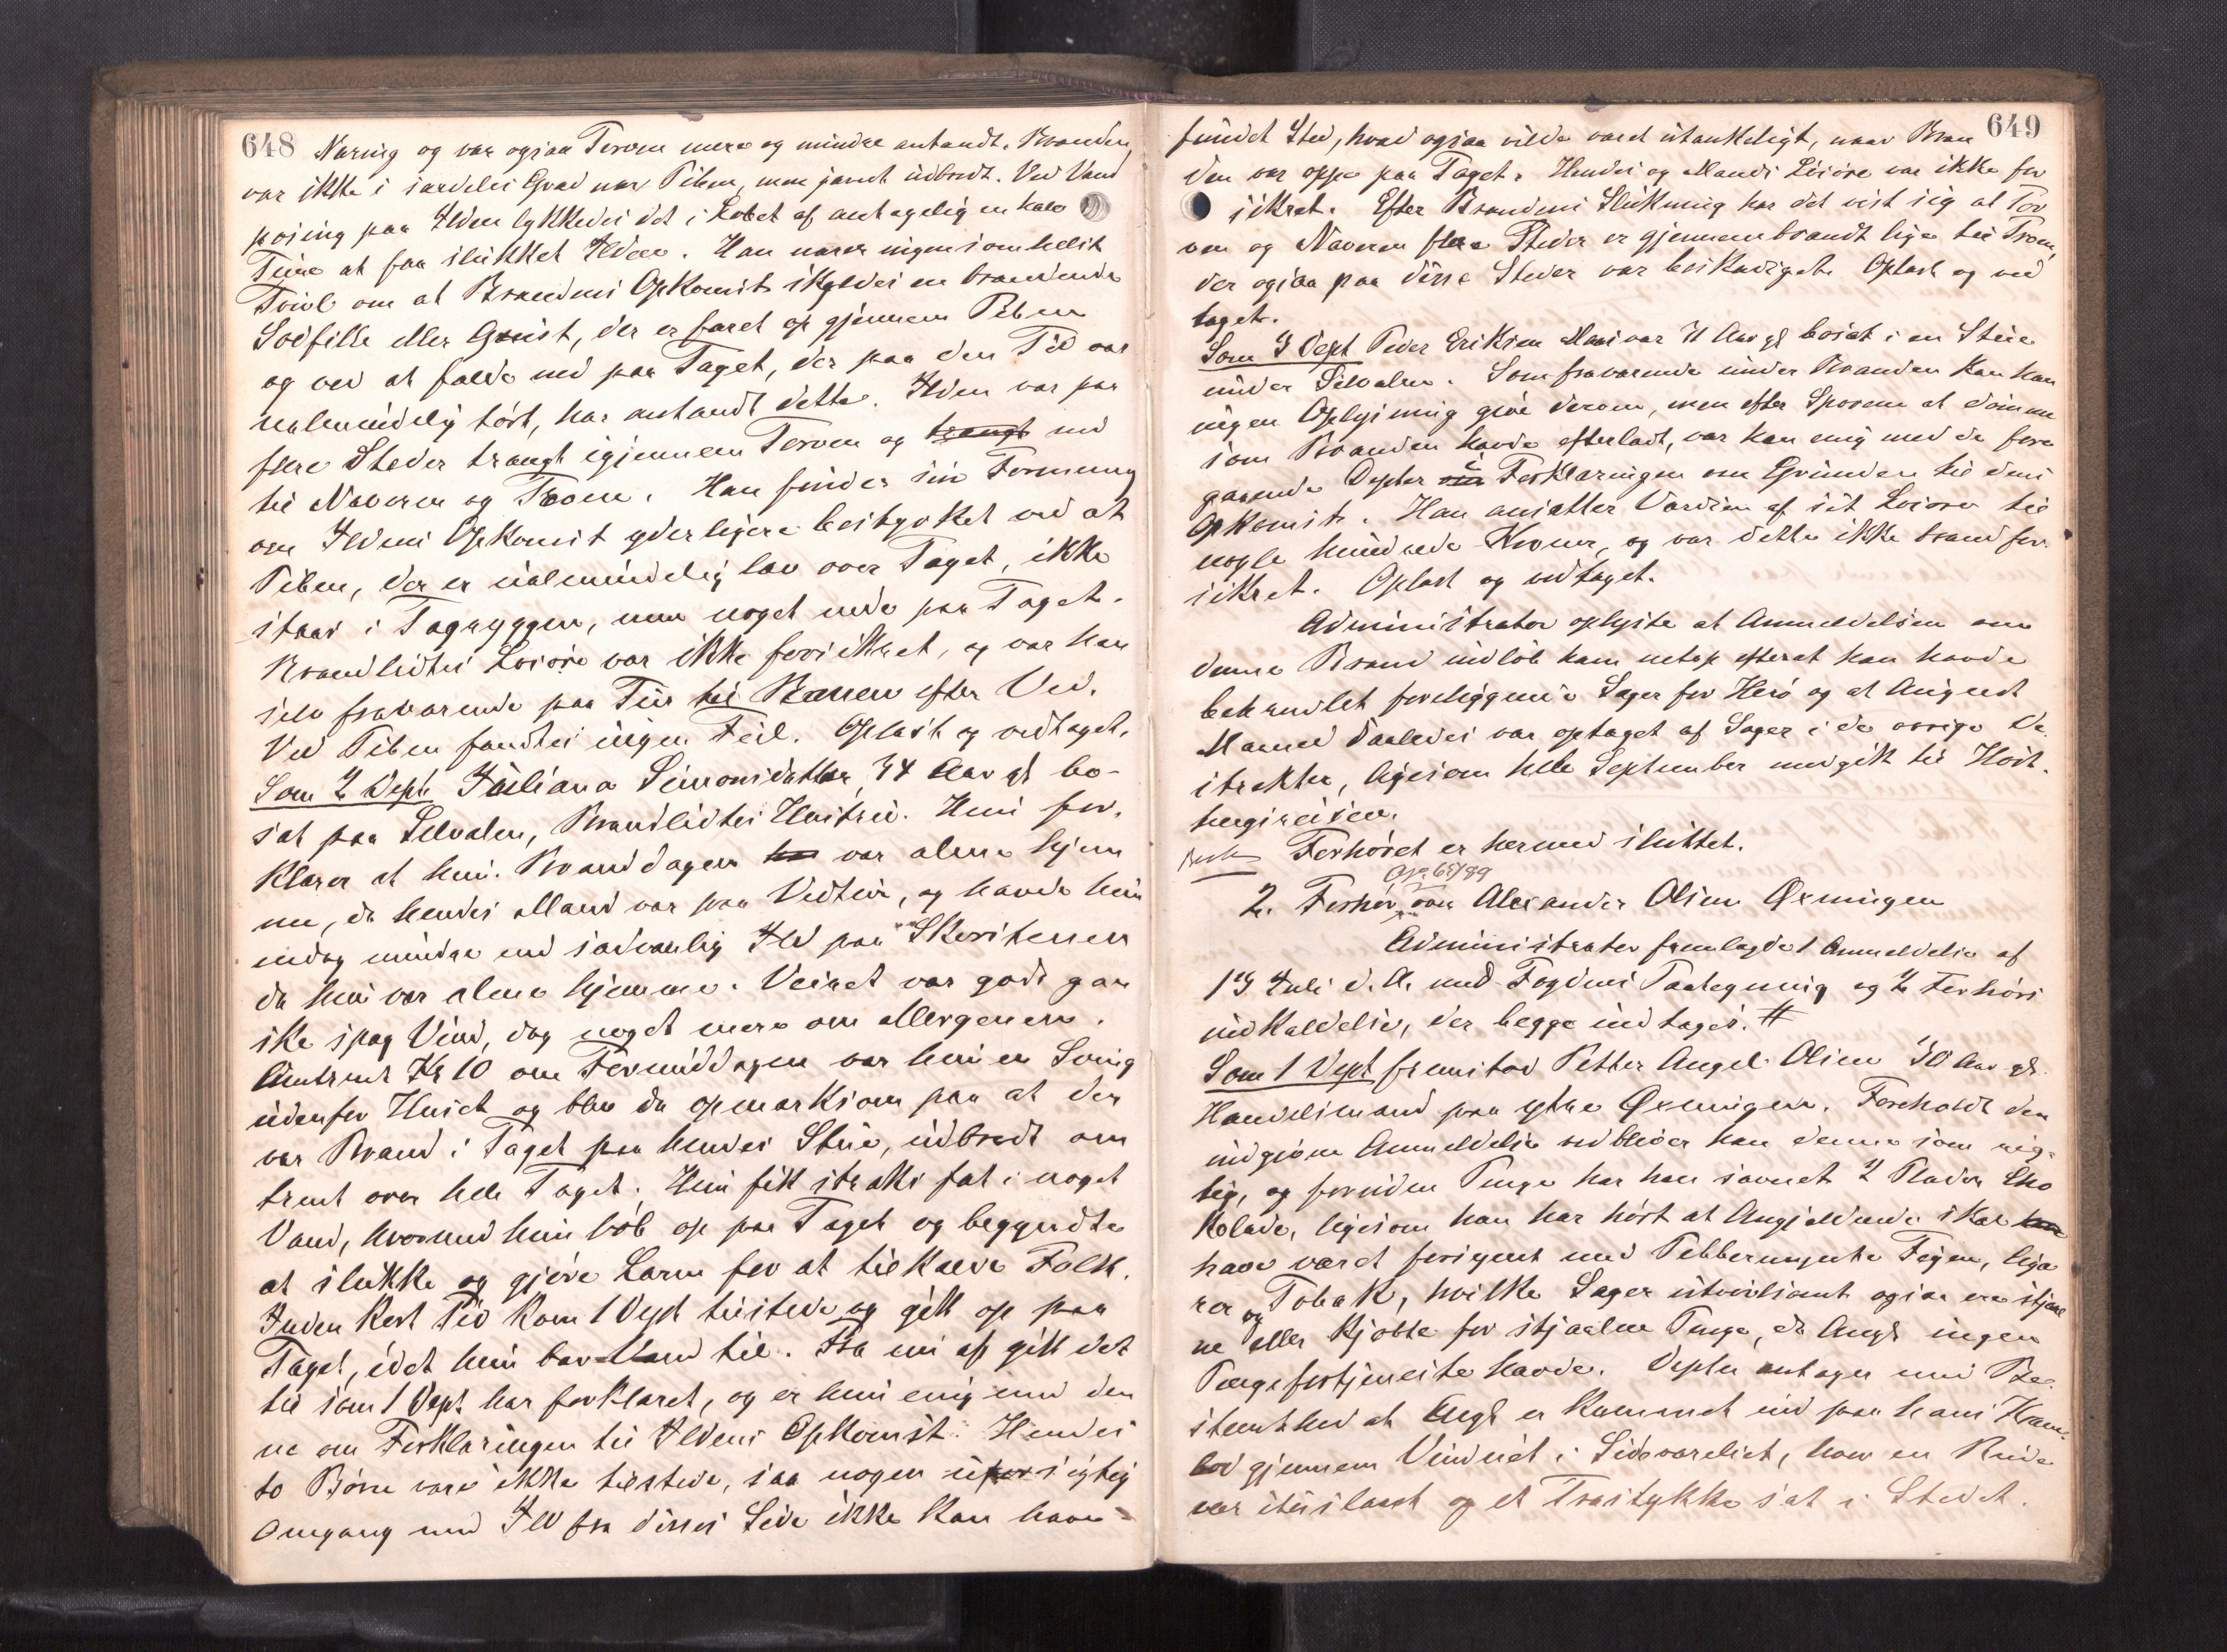 648
Næring og var ogsaa Torven mere og mindre antændt. Branden
var ikke i særdeles Grad nær Piben, men jævnt udbredt. Ved Vand
posing paa Ilden lykkedes det i Løbet af antagelig en halv
Time at faa slukket Ilden. Han nærer ingensomhelst
Tvivl om at Brandens Opkomst skyldes en brændende
Sodfille eller Gneist, der er faret op gjennem Piben
og ved at falde ned paa Taget, der paa den Tid var
ualmindelig tørt, har antændt dette. Ilden var paa
flere Steder trængt igjennem Torven og trængt ned
til Næveren og Troen. Han finder sin Formening
om Ildens Opkomst yderligere bestyrket ved at
Piben, der er ualmindelig lav over Taget, ikke
staar i Tagryggen, men noget nede paa Taget.
Brandlidtes Løsøre var ikke forsikret, og var han
selv fraværende paa Tur til Ranen efter Ved.
Ved Piben fandtes ingen Feil. Oplæst og vedtaget.
Som 2 Dept Juliana Simonsdatter, 34 Aar gl bo-
sat paa Selvalen, Brandlidtes Hustru. Hun for-
klarer at hun Branddagen har var alene hjem
me, da hendes Mand var paa Vedtur, og havde hun
endog mindre end sædvanlig Ild paa Skorstenen
da hun var alene hjemme. Veiret var godt gan
ske spag Vind, dog noget mere om Morgenen.
Omtrent Kl 10 om Formiddagen var hun en Sving
udenfor Huset og blev da opmærksom paa at der
var Brand i Taget paa hendes Stue, udbredt om
trent over hele Taget. Hun fik straks fat i noget
Vand, hvormed hun løb op paa Taget og begyndte
at slukke og gjøre Larm for at tilkalde Folk.
Inden kort Tid kom 1 Dept tilstede og gik op paa
Taget, idet hun bar Vand til. Fra nu af gik det
til som 1 Dept har forklaret, og er hun enig med den
ne om Forklaringen til Ildens Opkomst. Hendes
to Børn vare ikke tilstede, saa nogen uforsigtig
Omgang med Ild fra disses Side ikke kan have
649
fundet Sted, hvad ogsaa vilde været utænkeligt, naar Bran
den var oppe paa Taget. Hendes og Mands Løsøre var ikke for
sikret. Efter Brandens Slukning har det vist sig at Tor
ven og Næveren flere Steder er gjennembrændt lige til Troen,
der ogsaa paa disse Steder var beskadiget. Oplæst og ved
taget.
Som 3 Dept Peder Eriksen 71 Aar gl bosat i en Stue
under Selvalen. Som fraværende under Branden kan han
ingen Oplysning give derom, men efter Sporene at dømme
som Branden havde efterladt, var han enig med de fore
gaaende Depter i Forklaringen om Grunden til dens
Opkomst. Han ansætter Værdien af sit Løsøre til
nogle hundrede Kroner, og var dette ikke brandfor
sikret. Oplæst og vedtaget.
Administrator oplyste at Anmeldelsen om
denne Brand indløb ham netop efterat han havde
behandlet foreliggende Sager for Herø og at August
Maaned saaledes var optaget af Sager i de øvrige Di
strikter, ligesom hele September medgik til Høst-
tingsreisen.
Forhøret er hermed sluttet.
2. Forhør over Alexander Olsen Øxningen
Administrator fremlagde 1 Anmeldelse af
13 Juli d. A. med Fogdens Paategning og 2 Forhørs
indkaldelse, der begge indtages. #
Som 1 Dept fremstod Petter Angel Olsen 30 Aar gl.
Handelsmand paa ytre Øxningen. Foreholdt den
indgivne Anmeldelse vedbliver han denne som rig-
tig, og foruden Penge har han savnet 2 Plader Cho
kolade, ligesom han har hørt at Angjældende skal
have været forsynet med Pebbermynte Figen, Ciga
rer og Tobak, hvilke Sager utvivlsomt ogsaa ere stjaal
ne eller kjøbte for stjaalne Penge, da Angl ingen
Pengefortjeneste havde. Depten antager med Be-
stemthed at Angl er kommet ind paa hans Kram-
bod gjennem Vinduet i Sideværelset, hvor en Rude
var itusleaet og et Træstykke sat i Stedet.